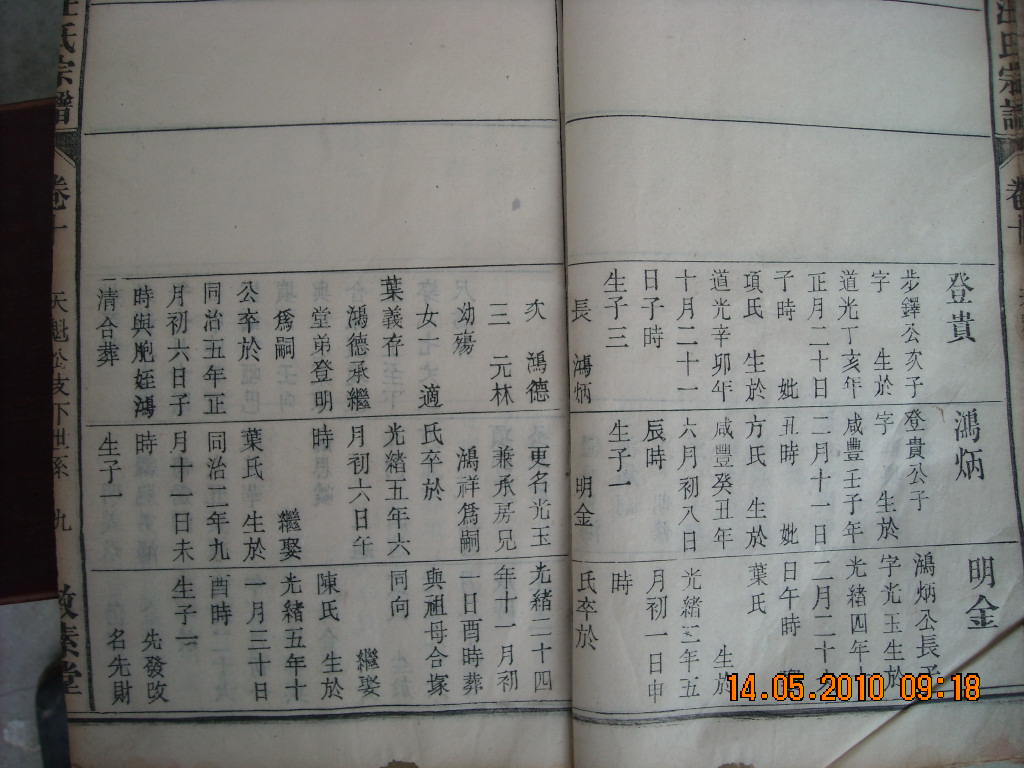 氏宗譜
卷十
登貴
步鐸公次子
字 生於
道光丁亥年
正月二十日
子時 妣
項氏 生於
道光辛卯年
十月二十一
日子時
生子三
長 鴻炳
次 鴻德
三 元林
幼殤
女一 適
葉義存
鴻德承繼
堂弟登明
爲嗣
公卒於
同治五年正
月初六日子
時與胞姪鴻
清合葬
鴻炳
登貴公子
字 生於
咸豐壬子年
二月十一日
丑時 妣
方氏 生於
咸豐癸丑年
六月初八日
辰時
生子一
明金
更名光玉
兼承房兄
鴻祥爲嗣
氏卒於
光緒五年六
月初六日午
時
繼娶
葉氏 生於
同治二年九
月十一日未
時
生子一
明金
鴻炳公長子
字光玉生於
光緒四年
二月二十
日午時
葉氏 生於
光緒二年五
月初一日申
時
氏卒於
光緒二十四
年十一月初
一日酉時葬
與祖母合塚
同向
繼娶
陳氏 生於
光緒五年十
一月三十日
酉時
生子一
先發改
名先財
氏宗譜
卷十
天魁公支下世系 九
素堂
14.05.2010 09:18